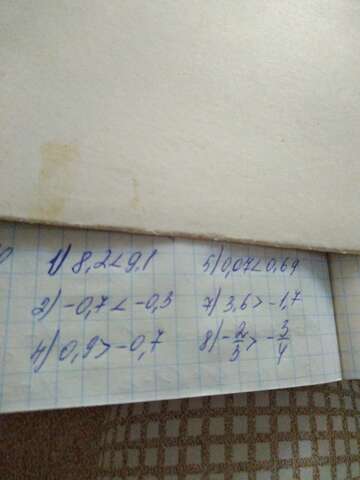 1) 8,2<9,1
2) -0,7 < -0,3
4) 0,9 > -0,7
5) 0,07<0,69
7) 3,6 > -1,7
8) -2/3 > -3/4